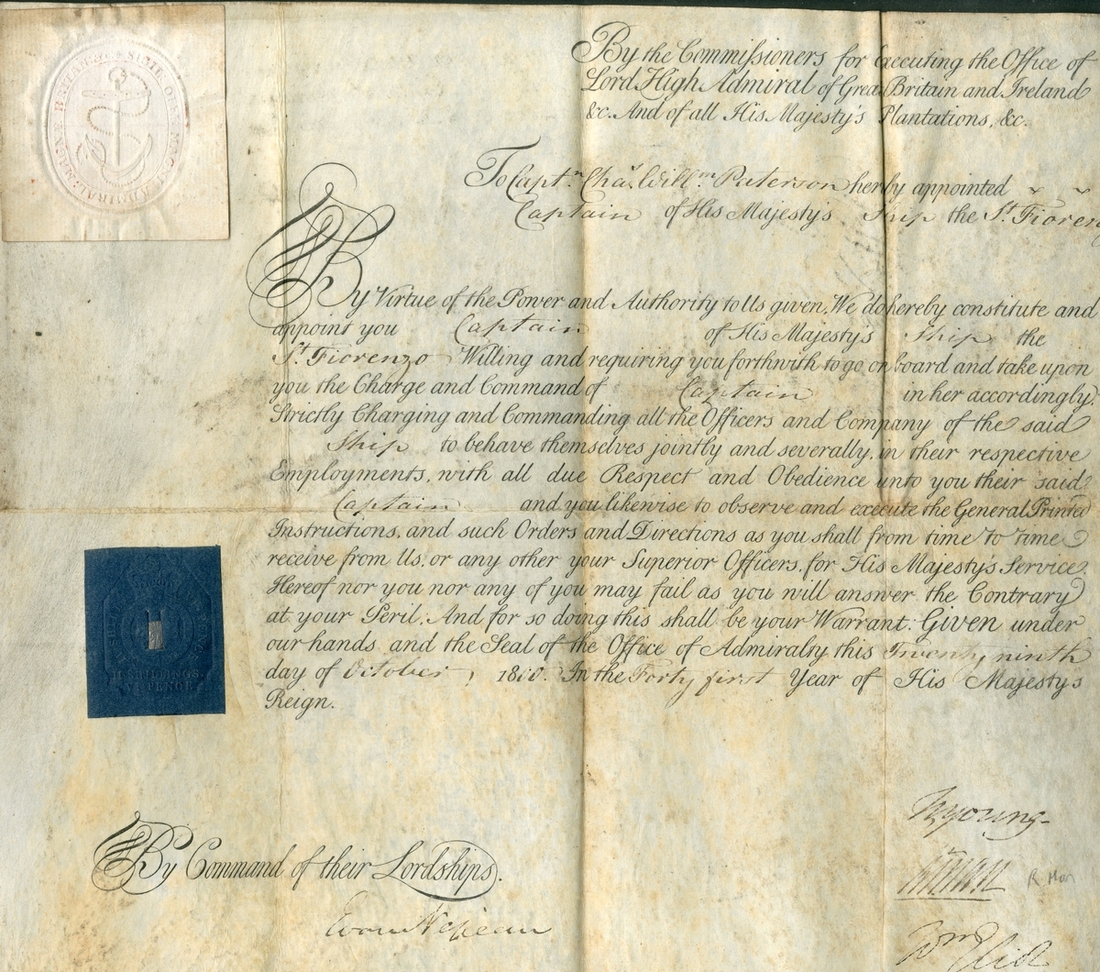 By the Commissioners for executing the Office of
Lord High Admiral of Great Britain and Ireland
&c. And of all His Majesty's Plantations, &c.
To Captn. Chas. Willm. Paterson hereby appointed
Captain of His Majesty's Ship the St. Fioren
By Virtue of the Power and Authority to Us given, We do hereby constitute and
appoint you Captain of His Majesty's Ship the
St. Fiorenzo Willing and requiring you forthwith to go on board and take upon
you the Charge and Command of Captain in her accordingly.
Strictly Charging and Commanding all the Officers and Company of the said
Ship to behave themselves jointly and severally, in their respective
Employments, with all due Respect and Obedience unto you their said
Captain and you likewise to observe and execute the General Printed
Instructions, and such Orders and Directions as you shall from time to time
receive from Us, or any other your Superior Officers, for His Majesty's Service.
Hereof nor you nor any of you may fail as you will answer the Contrary
at your Peril. And for so doing this shall be your Warrant. Given under
our hands and the Seal of the Office of Admiralty this Twenty ninth
day of October, 1800. In the Forty first Year of His Majesty's
Reign.
II SHILLINGS
VI PENCE
W Young
R Man
By Command of their Lordships.
Evan Nepean
Wm